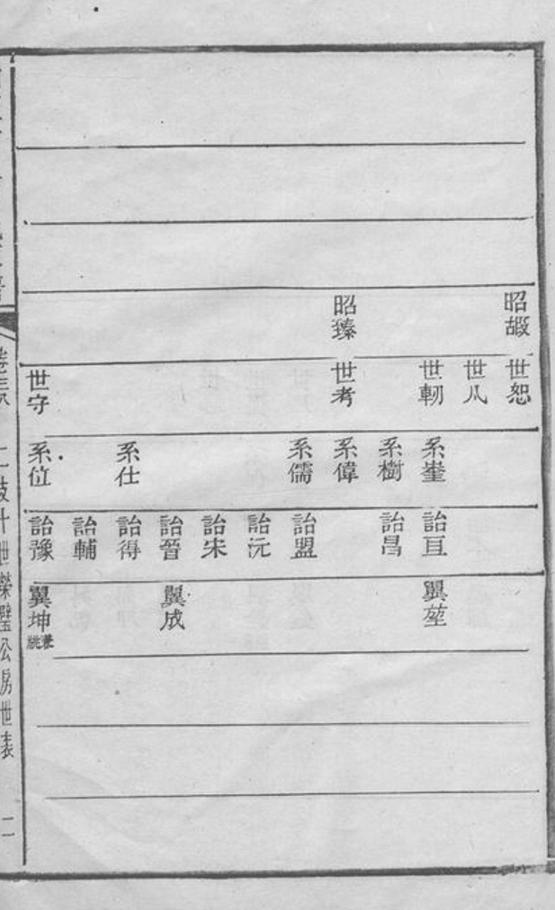 昭嘏 世恕
世
世軔 系 詒亘 翼堃
系樹 詒昌
昭臻 世考 系偉
系儒 詒盟
詒沅
詒宋
詒晉 翼成
系仕 詒得
詒輔
世守 系位 詒豫 翼坤 兼祧
十世榮璧公房世表
二